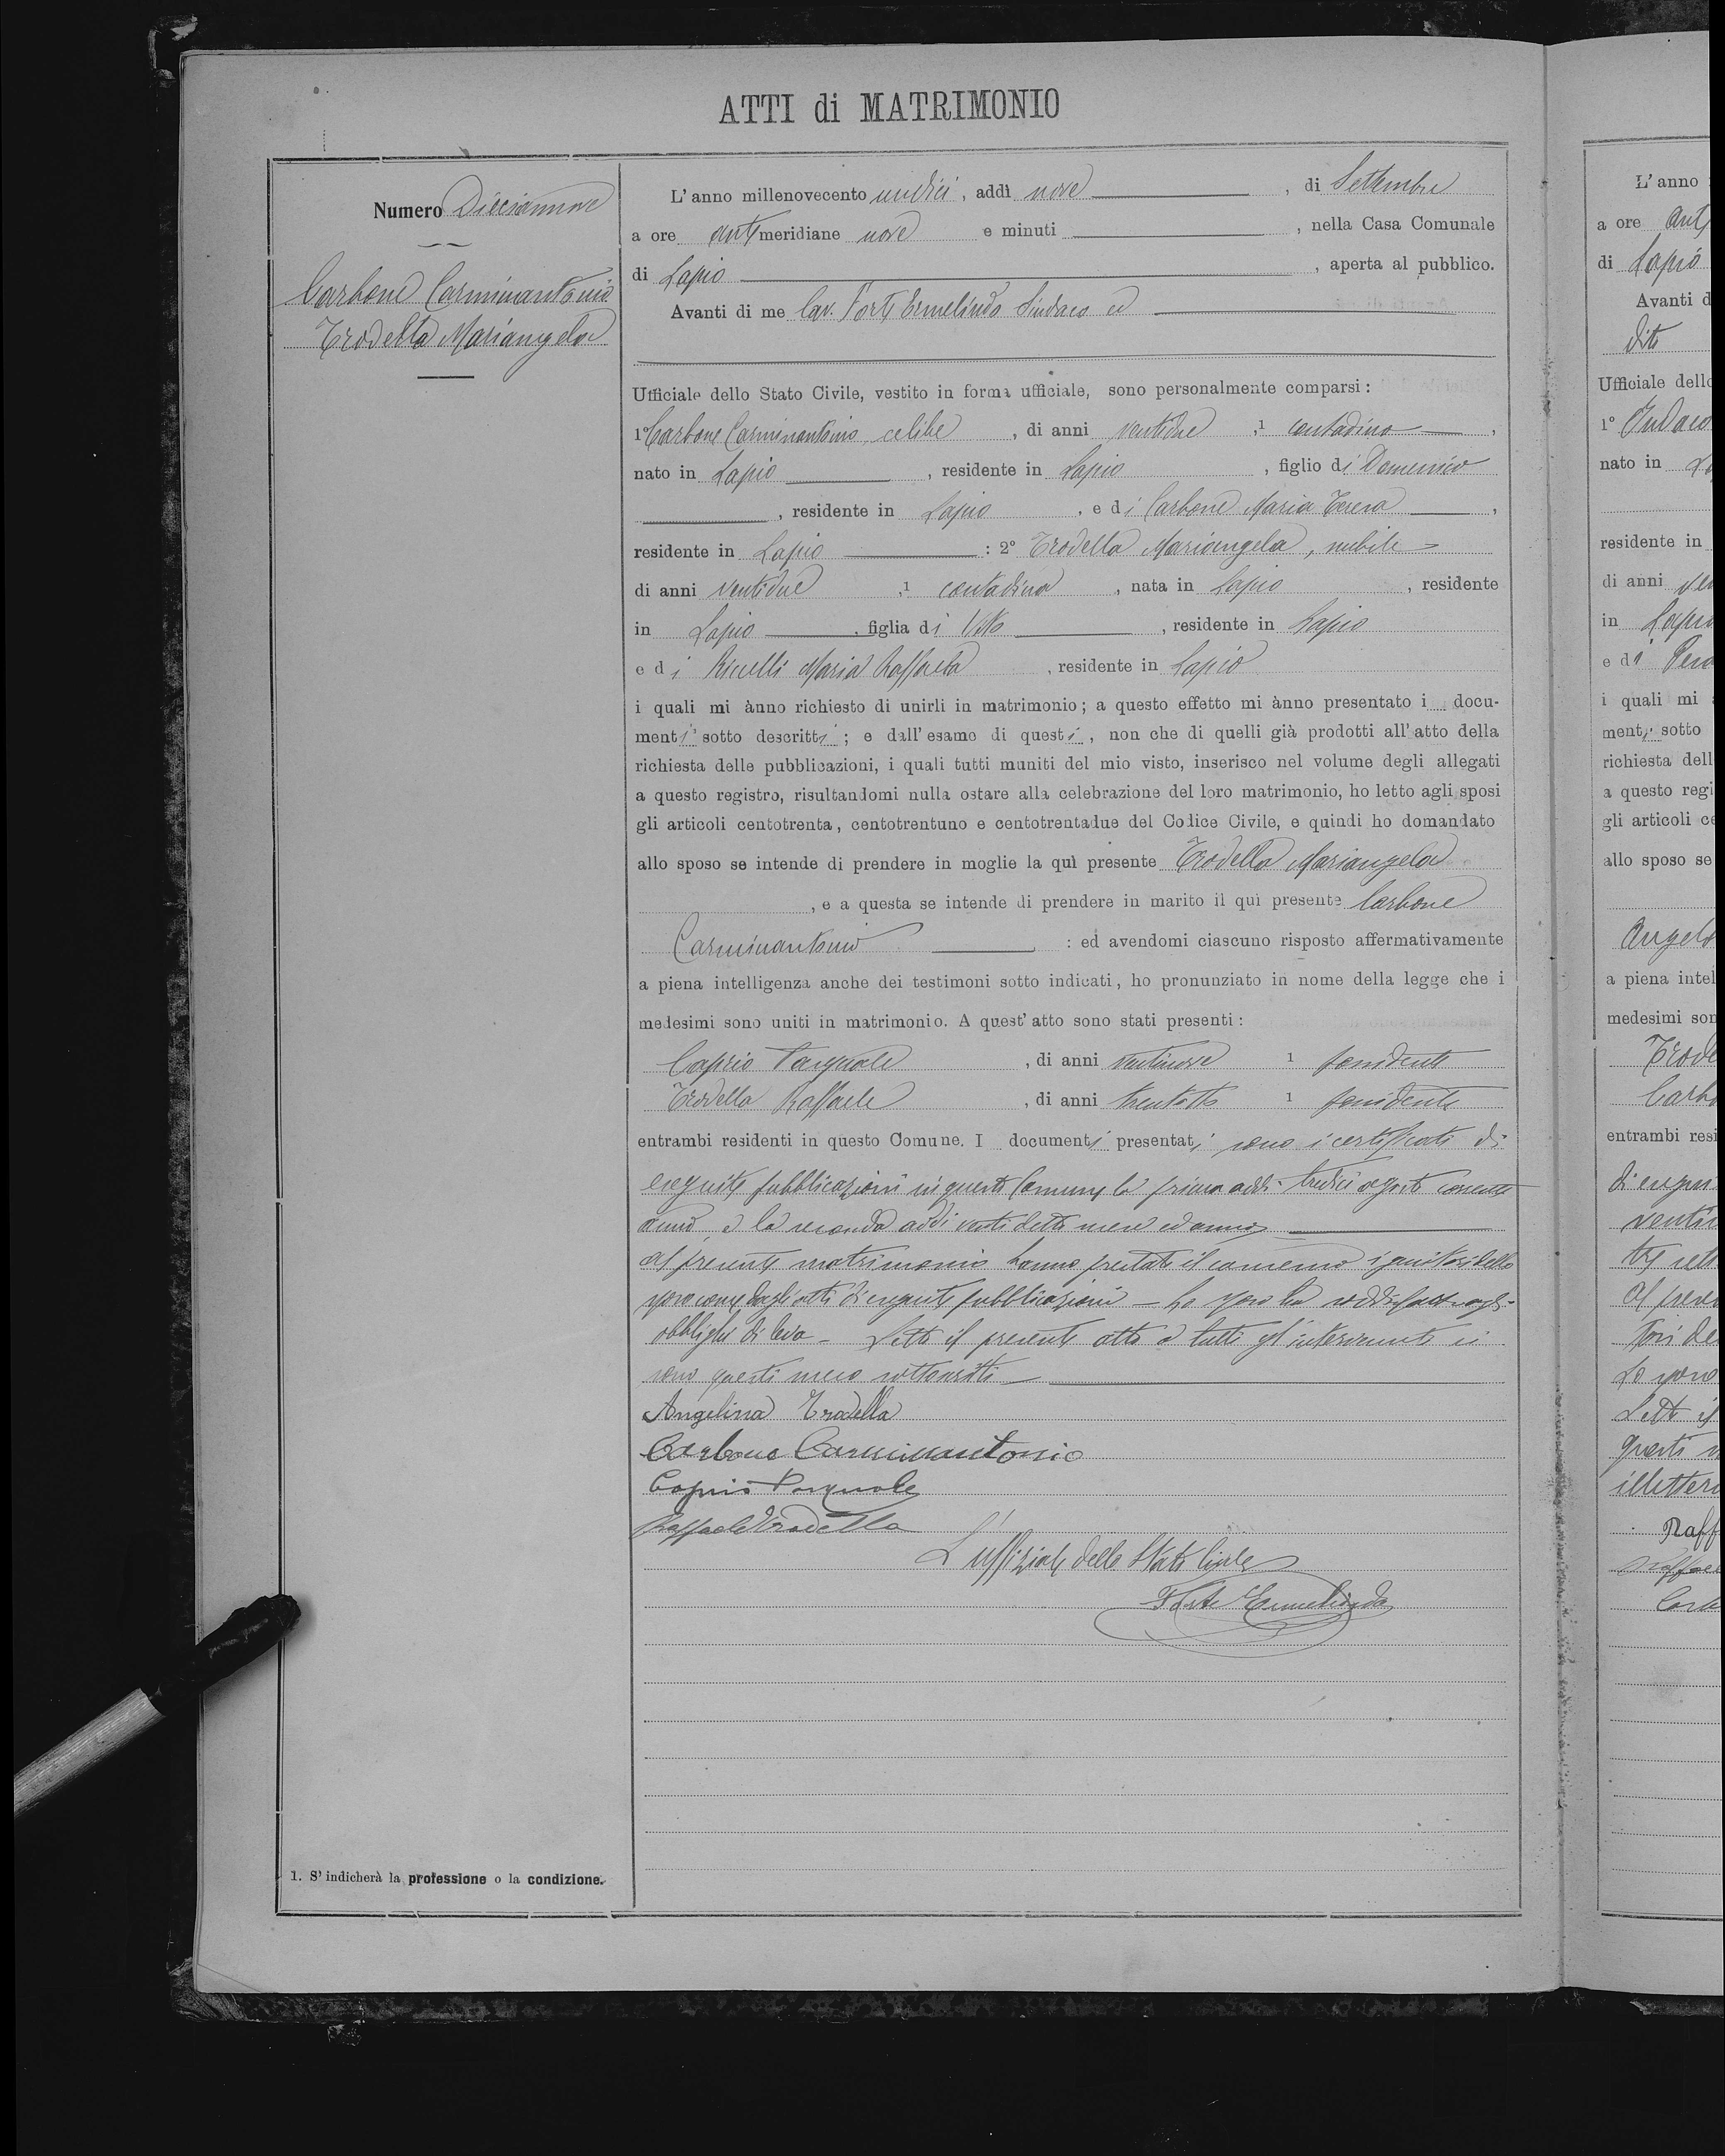 ATTI di MATRIMONIO
Numero Diciannove
Carbone Carminantonio
Trodella Mariangela
1. S' indicherà la professione o la condizione.
L' anno millenovecento undici, addì nove, di Settembre
a ore antimeridiane nove e minuti, nella Casa Comunale
di Lapio, aperta al pubblico.
Avanti di me Cav. Forte Ermelindo Sindaco ed
Ufficiale dello Stato Civile, vestito in forma ufficiale, sono personalmente comparsi:
1º Carbone Carminantonio celibe, di anni ventidue, 1 contadino,
nato in Lapio, residente in Lapio, figlio di Domenico
, residente in Lapio, e di Carbone Maria Teresa,
residente in Lapio: 2º Trodella Mariangela, nubile
di anni ventidue, 1 contadina, nata in Lapio, residente
in Lapio, figlia di Vito, residente in Lapio
e di Ricelli Maria Raffaela, residente in Lapio
i quali mi ànno richiesto di unirli in matrimonio; a questo effetto mi ànno presentato i docu-
menti sotto descritti; e dall' esame di questi, non che di quelli già prodotti all' atto della
richiesta delle pubblicazioni, i quali tutti muniti del mio visto, inserisco nel volume degli allegati
a questo registro, risultandomi nulla ostare alla celebrazione del loro matrimonio, ho letto agli sposi
gli articoli centotrenta, centotrentuno e centotrentadue del Codice Civile, e quindi ho domandato
allo sposo se intende di prendere in moglie la quì presente Trodella Mariangela
, e a questa se intende di prendere in marito il quì presente Carbone
Carminantonio: ed avendomi ciascuno risposto affermativamente
a piena intelligenza anche dei testimoni sotto indicati, ho pronunziato in nome della legge che i
medesimi sono uniti in matrimonio. A quest' atto sono stati presenti:
Caprio Pasquale, di anni ventinove 1 possidente
Trodella Raffaele, di anni trentotto 1 possidente
entrambi residenti in questo Comune. I documenti presentati sono i certificati di
eseguite pubblicazioni in questo Comune la prima addì tredici agosto corrente
anno, e la seconda addì venti detto mese ed anno
Al presente matrimonio hanno prestato il consenso i genitori dello
sposo come dagli atti di eseguite pubblicazioni - Lo sposo ha soddisfatto agli
obblighi di leva - Letto il presente atto a tutti gl' intervenuti si
sono questi meco sottoscritti
Angelina Trodella
Carbone Carminantonio
Caprio Pasquale
Raffaele Trodella
L' uffiziale dello Stato Civile
Forte Ermelindo
L' anno
a ore ant
di Lapio
Avanti d
Ufficiale dello
1º
nato in
residente in
di anni
in Lapio
e di
i quali mi
menti sotto
richiesta dell
a questo regi
gli articoli ce
allo sposo se
Angelo
a piena intel
medesimi son
Trode
Carbo
entrambi resi
di eseguit
Lo sposo
Letto il
questi m
illetter
Raff